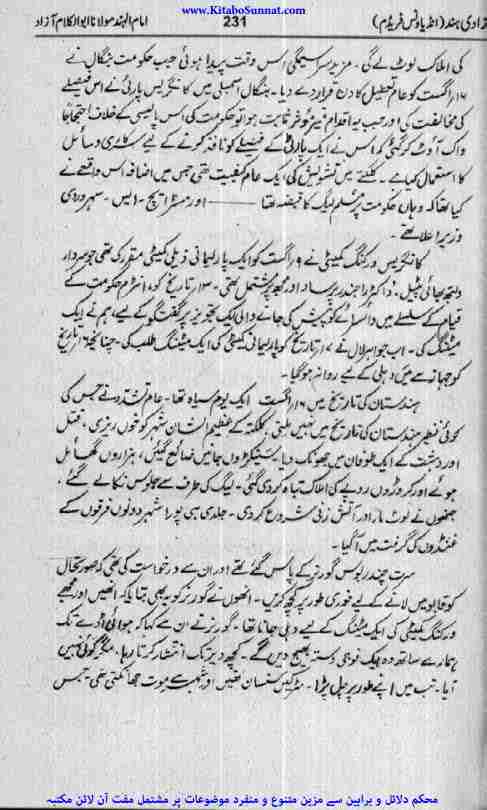 www.KitaboSunnat.com
آزادی ہند (انڈیا ونس فریڈم)
231
امام الہند مولانا ابوالکلام آزاد
کی املاک لوٹ لے گی۔ مزید سراسیمگی اس وقت پیدا ہوئی جب حکومت بنگال نے
۱۶ اگست کو عام تعطیل کا دن قرار دے دیا۔ بنگال اسمبلی میں کانگریس پارٹی نے اس فیصلے
کی مخالفت کی اور جب یہ اقدام غیر مؤثر ثابت ہوا تو حکومت کی اس پالیسی کے خلاف احتجاجاً
واک آوٹ کر گئی کہ اس نے ایک پارٹی کے فیصلے کو نافذ کرنے کے لیے سرکاری وسائل
کا استعمال کیا ہے۔ کلکتے میں تشویش کی ایک عام کیفیت تھی جس میں اضافہ اس واقعے نے
کیا تھا کہ وہاں حکومت پر مسلم لیگ کا قبضہ تھا ——— اور مسٹر ایچ۔ ایس۔ سہروردی
وزیر اعلا تھے۔
کانگریس ورکنگ کمیٹی نے ۹ اگست کو ایک پارلیمانی ذیلی کمیٹی مقرر کی تھی جو سردار
ولبھ بھائی پٹیل۔ ڈاکٹر راجندر پرساد اور مجھ پر مشتمل تھی۔ ۱۳ تاریخ کو، انٹرم حکومت کے
قیام کے سلسلے میں وائسرائے کو پیش کی جانے والی ایک تجویز پر گفتگو کے لیے، ہم نے ایک
میٹنگ کی۔ اب جواہر لال نے ۱۷ تاریخ کو پارلیمانی کمیٹی کی ایک میٹنگ طلب کی۔ چنانچہ تاریخ
کو جہاز سے میں دہلی کے لیے روانہ ہو گیا۔
ہندستان کی تاریخ میں ۱۶ اگست ایک یوم سیاہ تھا۔ عام تشدد نے جس کی
کوئی نظیر ہندستان کی تاریخ میں نہیں ملتی، کلکتہ کے عظیم الشان شہر کو خوں ریزی، قتل
اور دہشت کے ایک طوفان میں جھونک دیا۔ سیکڑوں جانیں ضائع گئیں، ہزاروں گھائل
ہوئے اور کروڑوں روپے کی املاک تباہ کر دی گئی۔ لیگ کی طرف سے جلوس نکالے گئے،
جنھوں نے لوٹ مار اور آتش زنی شروع کر دی۔ جلد ہی پورا شہر دونوں فرقوں کے
غنڈوں کی گرفت میں آ گیا۔
سرت چندر بوس گورنر کے پاس گئے تھے اور ان سے درخواست کی تھی کہ صورتحال
کو قابو میں لانے کے لیے فوری طور پر کچھ کریں۔ انھوں نے گورنر کو یہ بھی بتایا کہ انھیں اور مجھے
ورکنگ کمیٹی کی ایک میٹنگ کے لیے دہلی جانا تھا۔ گورنر نے ان سے کہا کہ ہوائی اڈے تک
ہمارے ساتھ وہ ایک فوجی دستہ بھیج دیں گے۔ کچھ دیر تک انتظار کرتا رہا، مگر کوئی نہیں
آیا۔ تب میں اپنے طور پر چل پڑا۔ سڑکیں سنسان تھیں اور شہر سے موت جھانکتی تھی۔ جس
محکم دلائل و براہین سے مزین متنوع و منفرد موضوعات پر مشتمل مفت آن لائن مکتبہ